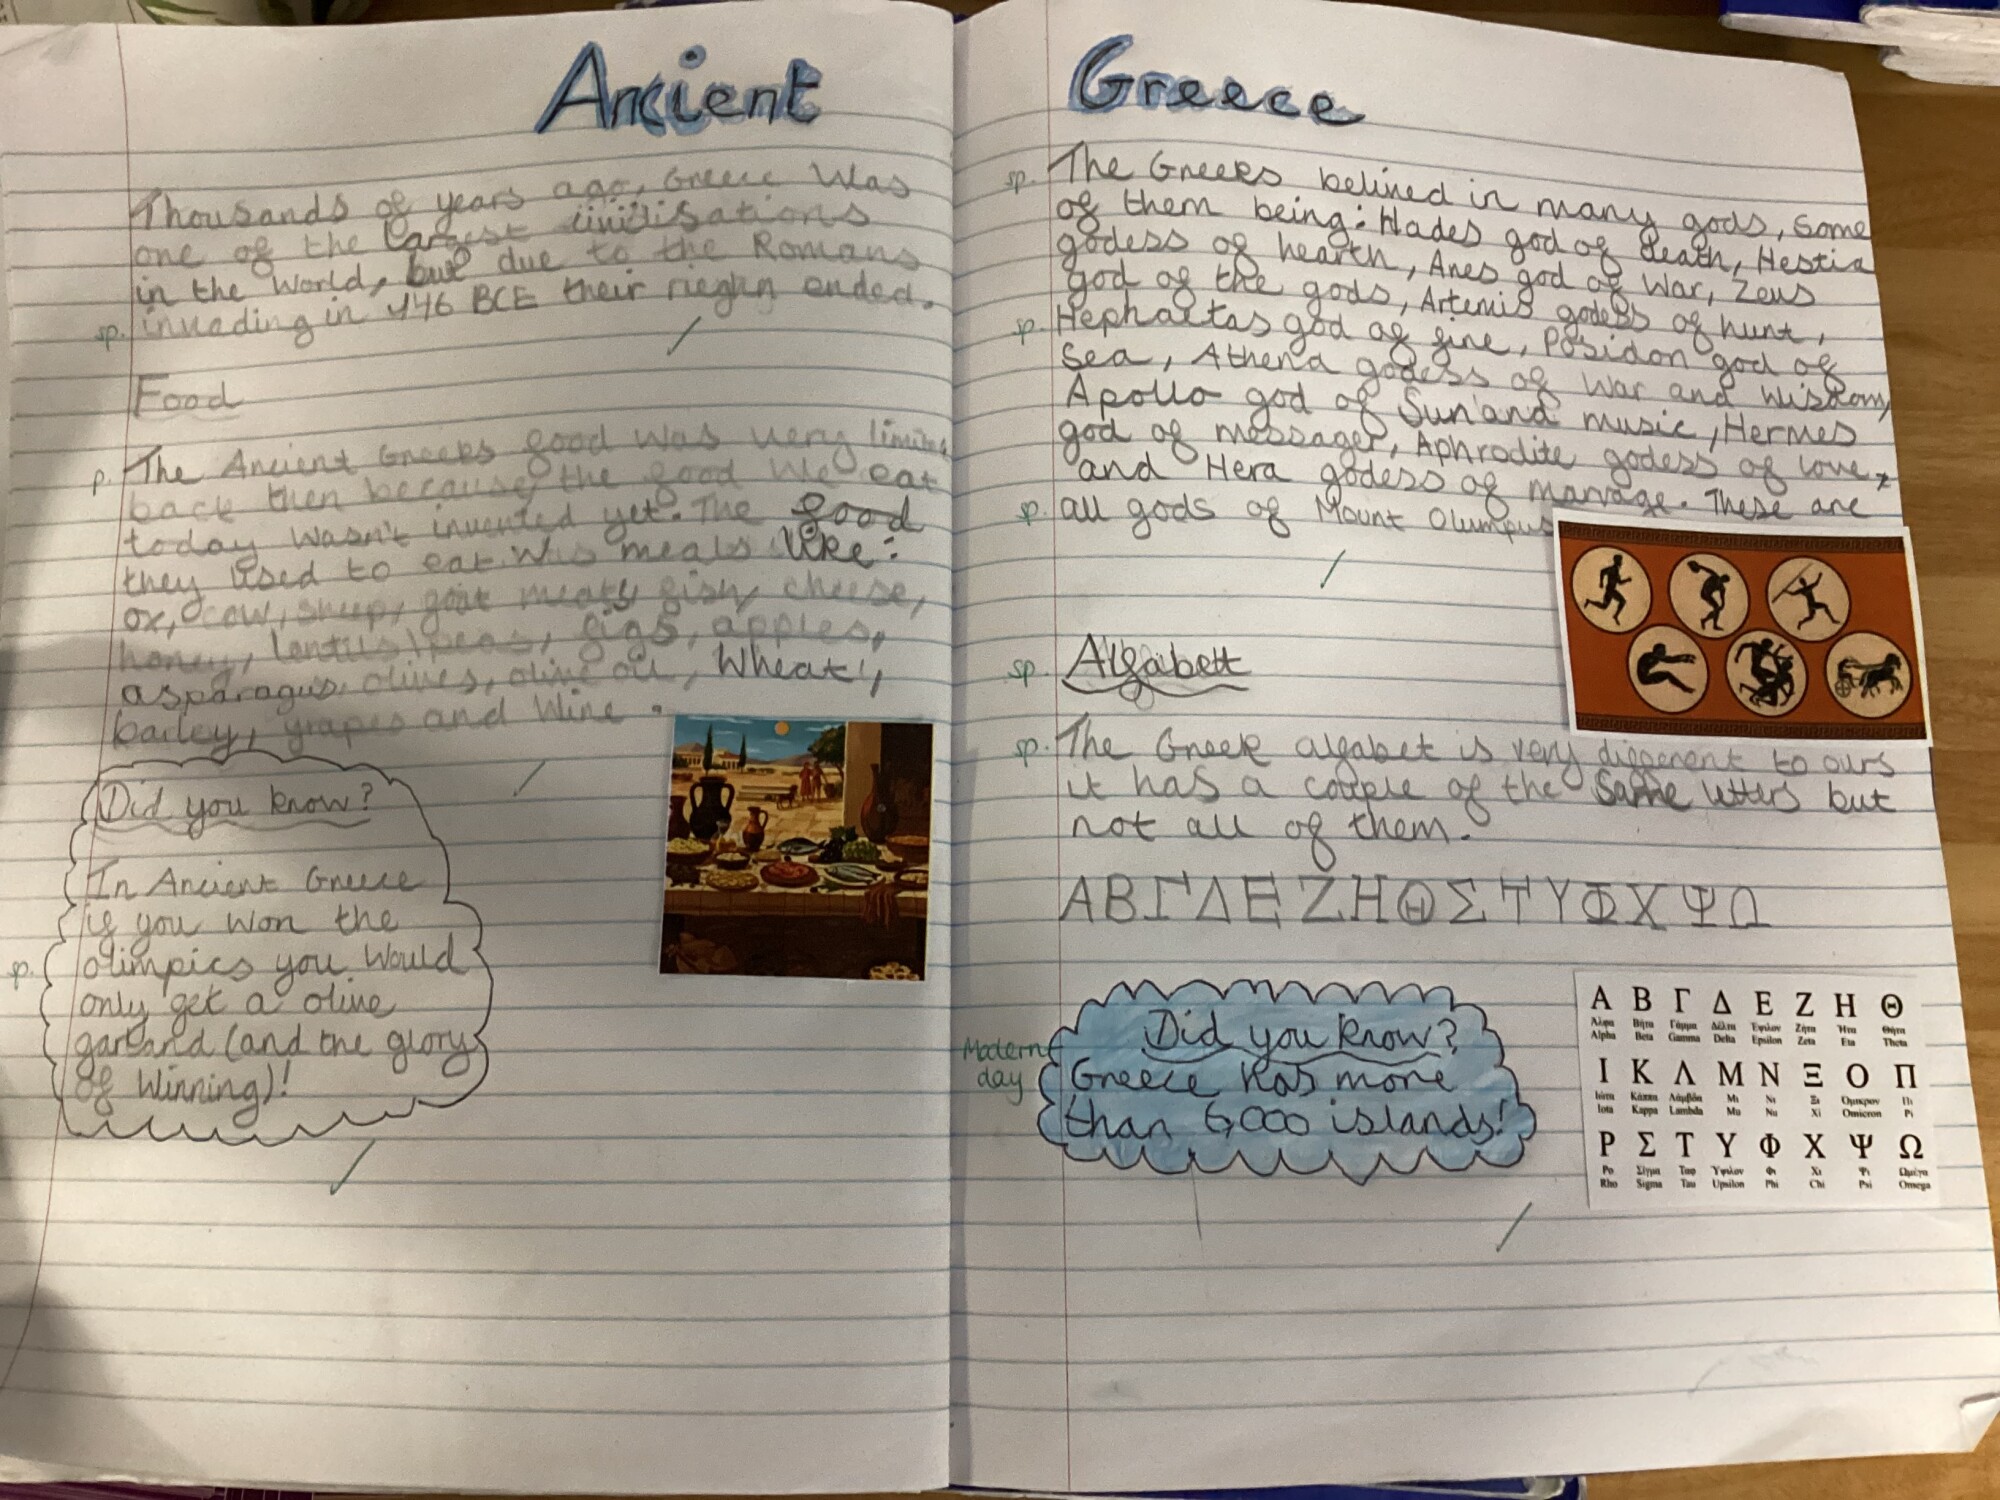 Ancient Greece
Thousands of years ago, Greece Was
one of the largest civilisations
in the World, but due to the Romans
sp. invading in 146 BCE their rieghn ended.
Food
p. The Ancient Greeks food was very limited
back then because the food We eat
today wasn't invented yet. The food
they used to eat was meals like:
ox, cow, sheep, goat meats fish, cheese,
honey, lentils\peas, figs, apples,
asparagus, olives, olive oil, Wheat,
barley, grapes and Wine.
Did you know?
In Ancient Greece
if you won the
sp. olimpics you Would
only get a olive
garland (and the glory
of Winning)!
sp. The Greeks belived in many gods, Some
of them being: Hades god of death, Hestia
godess of hearth, Ares god of War, Zeus
god of the gods, Artemis godess of hunt,
sp. Hephaetas god of fire, Posidon god of
Sea, Athena godess of War and Wisdom,
Apollo god of Sun and music, Hermes
god of messager, Aphrodite godess of love,
and Hera godess of marrage. These are
sp. all gods of Mount Olumpus
sp. Alfabett
sp. The Greek alfabet is very different to ours
it has a couple of the Same letters but
not all of them.
Α Β Γ Δ Ε Ζ Η Θ Σ Τ Υ Φ Χ Ψ Ω
Modern
day
Did you know?
Greece has more
than 6,000 islands!
Α Β Γ Δ Ε Ζ Η Θ
Άλφα Βήτα Γάμμα Δέλτα Έψιλον Ζήτα Ήτα Θήτα
Alpha Beta Gamma Delta Epsilon Zeta Eta Theta
Ι Κ Λ Μ Ν Ξ Ο Π
Ιώτα Κάππα Λάμβδα Μι Νι Ξι Όμικρον Πι
Iota Kappa Lambda Mu Nu Xi Omicron Pi
Ρ Σ Τ Υ Φ Χ Ψ Ω
Ρο Σίγμα Ταυ Ύψιλον Φι Χι Ψι Ωμέγα
Rho Sigma Tau Upsilon Phi Chi Psi Omega